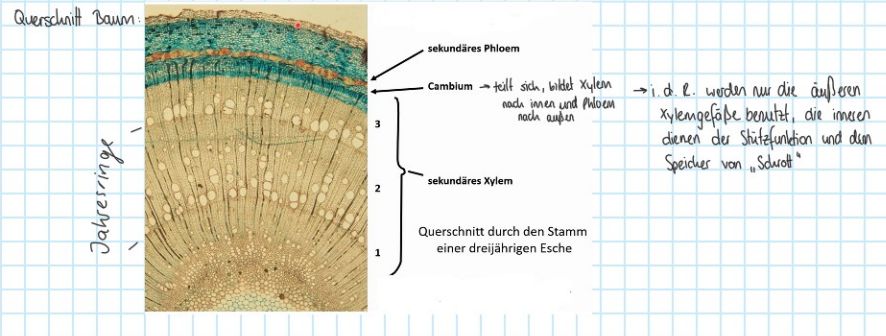 Querschnitt Baum:
sekundäres Phloem
Cambium → teilt sich, bildet Xylem
nach innen und Phloem
nach außen
→ i. d. R. werden nur die äußeren
Xylemgefäße benutzt, die inneren
dienen der Stützfunktion und dem
Speicher von „Schrott"
3
Jahresringe
sekundäres Xylem
2
Querschnitt durch den Stamm
einer dreijährigen Esche
1